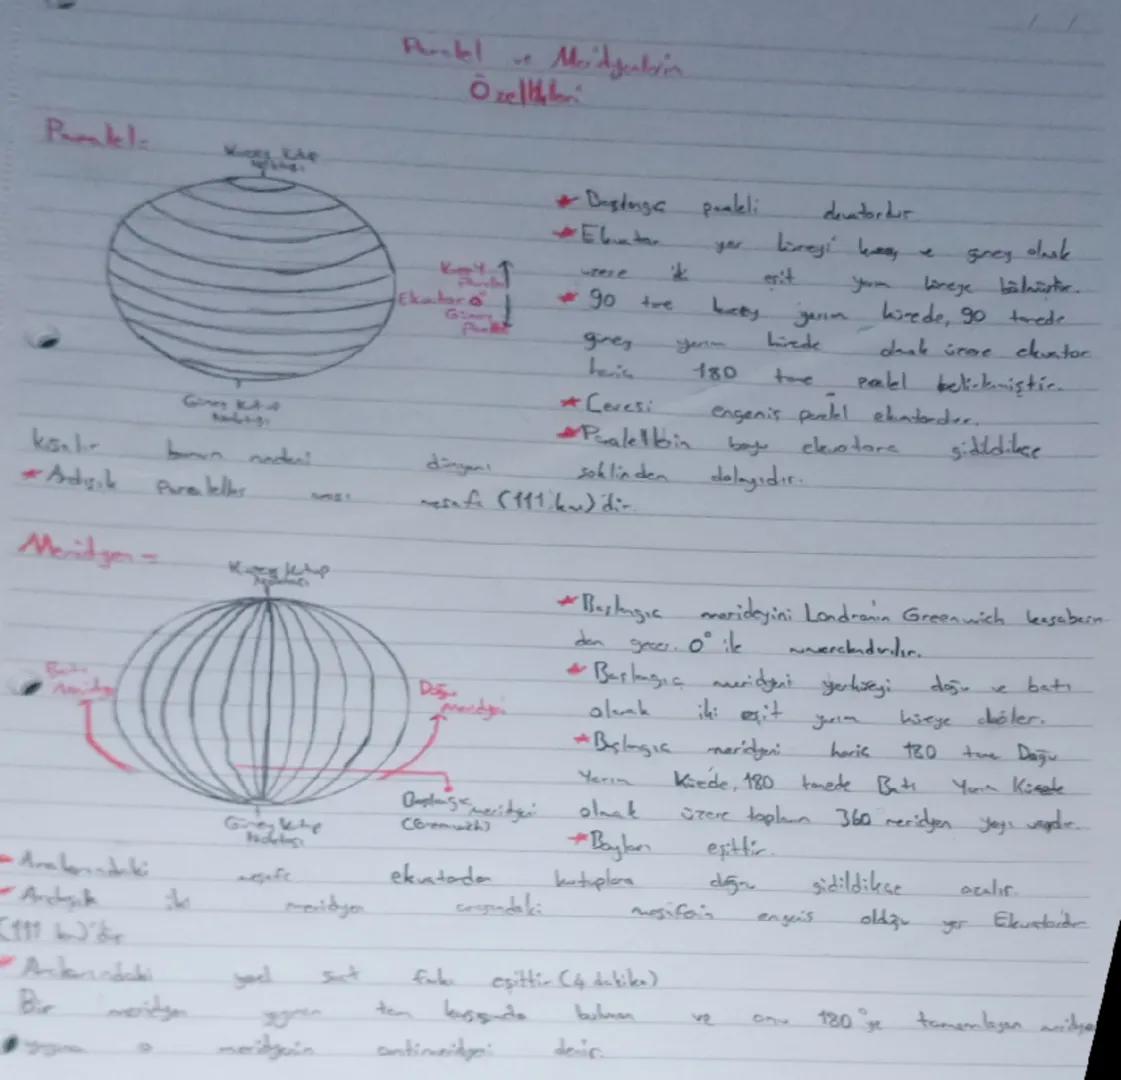 Paralel ve Meridyenlerin
Özellikleri
Paralel-
Kuzey Kutup
Noktası
★ Başlangıç paraleli ekvatordur
★ Ekvator yer küreyi kuzey ve güney olmak
üzere iki eşit yarım küreye bölmüştür.
Kuzey
Paralel
Ekvator 0°
Güney
Paralel
★ 90 tane kuzey yarım kürede, 90 tanede
güney yarım kürede olmak üzere ekvator
hariç 180 tane paralel belirlenmiştir.
Güney Kutup
Noktası
★ Çevresi en geniş paralel ekvatordur.
★ Paralellerin boyu gidildikçe
kısalır bunun nedeni dünyanın şeklinden dolayıdır.
★ Ardışık Paraleller arası mesafe (111 km)'dir.
Meridyen-
Kuzey Kutup
Noktası
★ Başlangıç meridyeni Londranın Greenwich kasabasın
dan geçer. 0° ile numaralandırılır.
★ Başlangıç meridyeni yerküreyi doğu ve batı
olarak iki eşit yarım küreye böler.
Batı
Meridyen
Doğu
Meridyen
★ Başlangıç meridyeni hariç 180 tane Doğu
Yarım Kürede, 180 tanede Batı Yarım Kürede
olmak üzere toplam 360 meridyen yayı vardır.
Başlangıç meridyeni
(Greenwich)
Güney Kutup
Noktası
★ Boyları eşittir.
Aralarındaki mesafe ekvatordan kutuplara doğru gidildikçe azalır.
Ardışık iki meridyen arasındaki mesafenin en geniş olduğu yer Ekvatordur
(111 km)'dir
Aralarındaki yerel saat farkı eşittir (4 dakika)
Bir meridyen yayının tam karşısında bulunan ve onu 180°ye tamamlayan meridyen
yayına o meridyenin antimeridyeni denir.